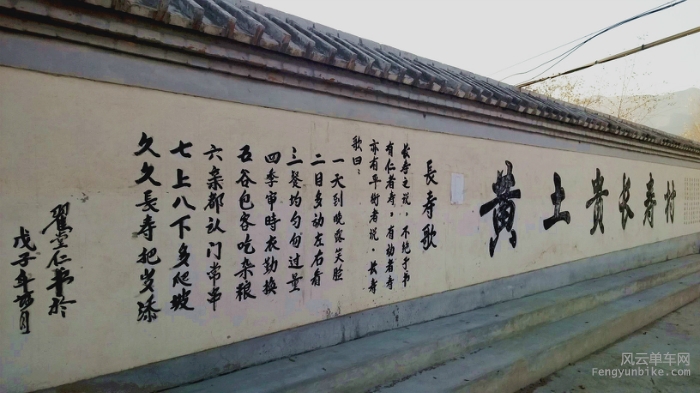 黄土贵长寿村
長寿歌
长寿之说,不绝于书
有仁者寿,有动者寿
亦有平衡者说,长寿
歌曰:
一天到晚露笑脸
二目多动左右看
三餐均匀勿过量
四季审时衣勤换
五谷包容吃杂粮
六亲都认门常串
七上八下多爬坡
久久長寿把岁添
翟仁书於
戊子年月
风云单车网
Fengyunbike.com